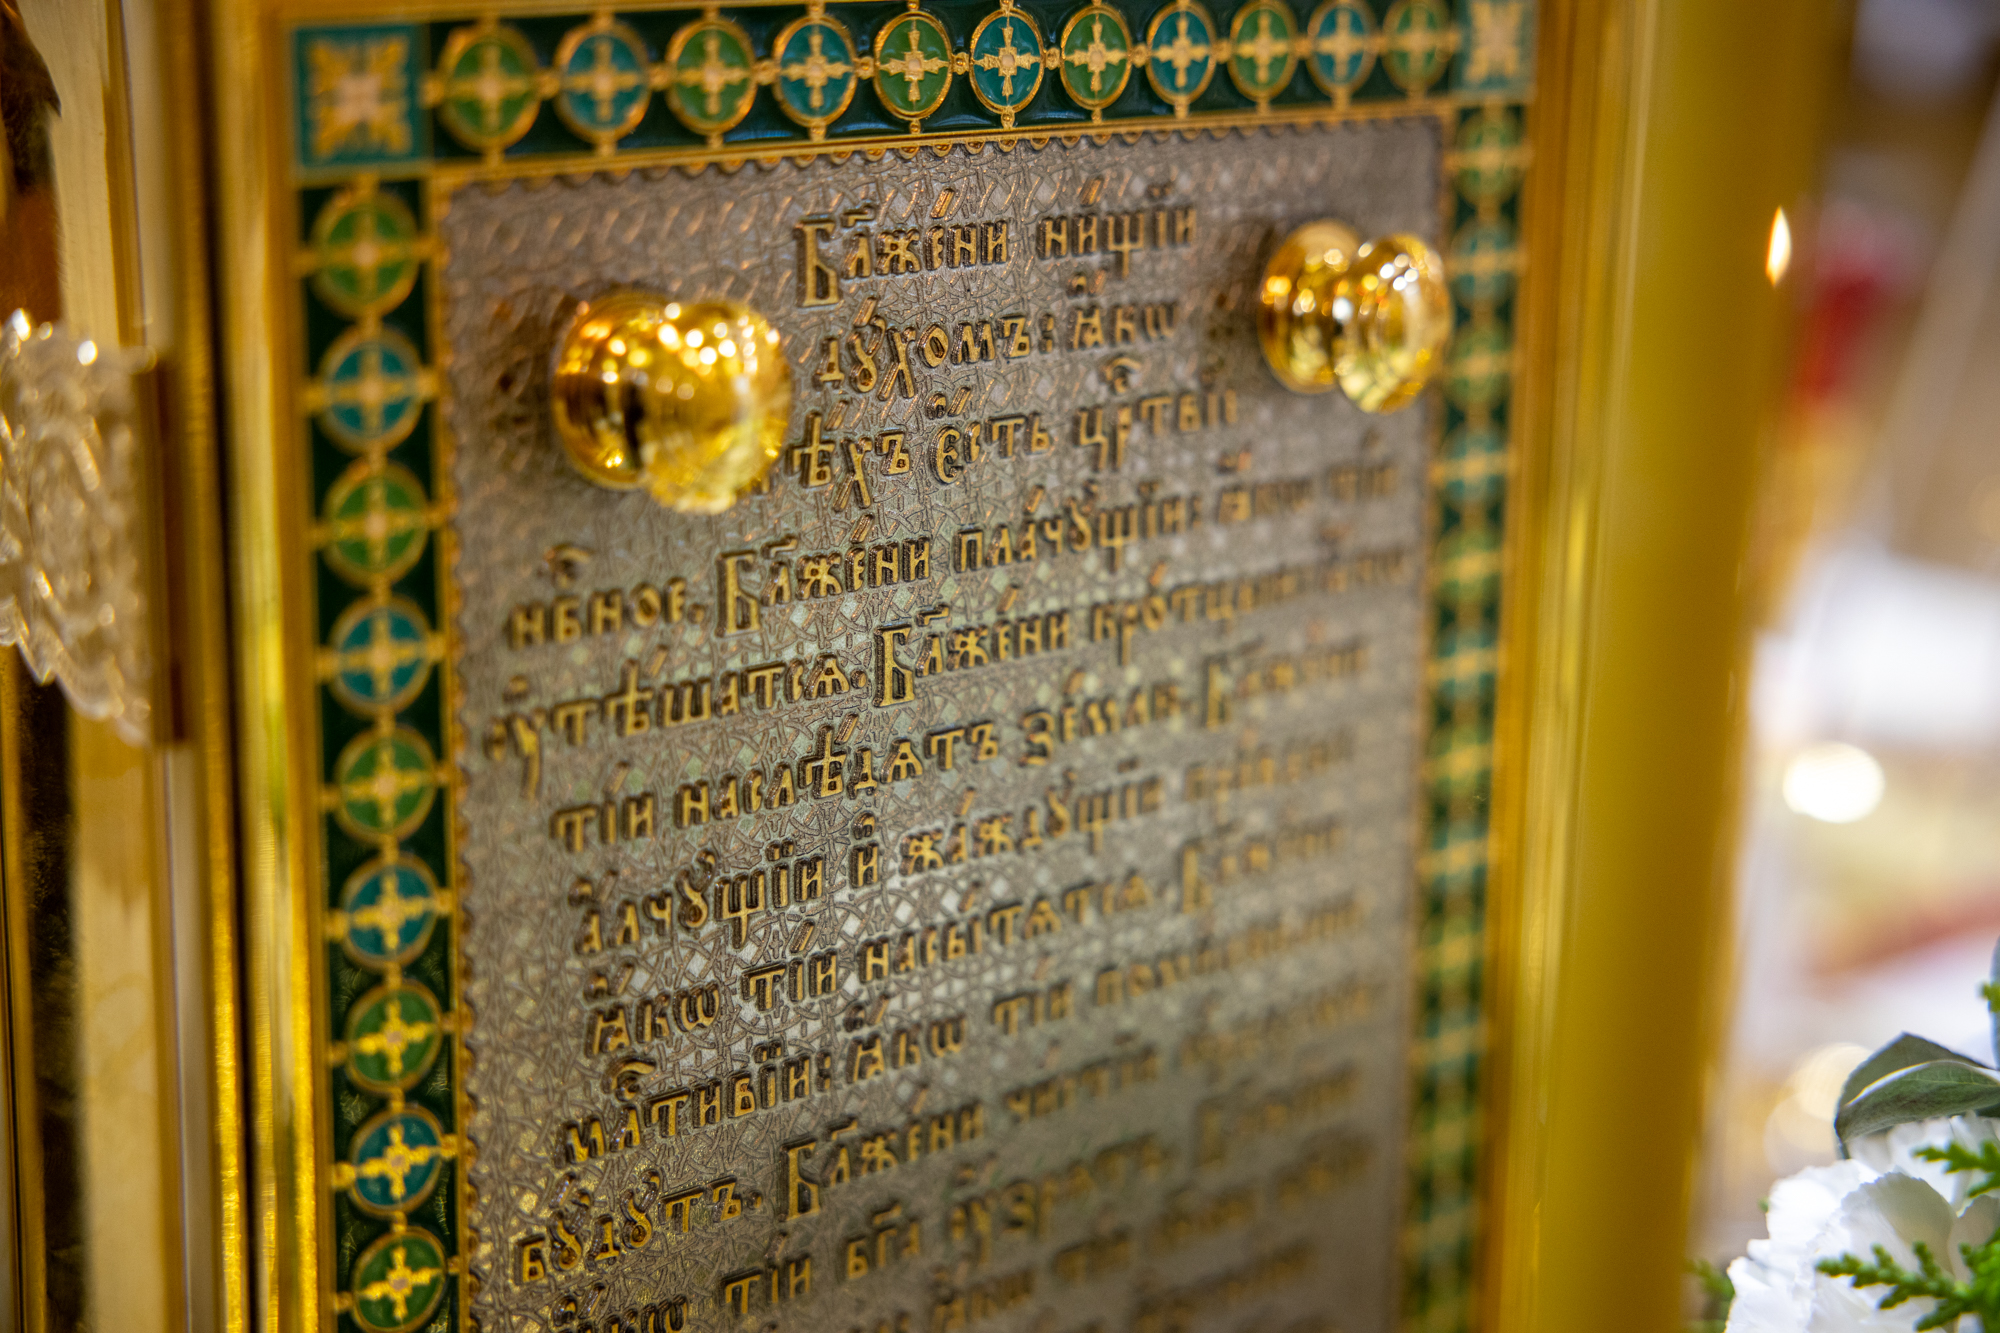 Бл҃же́ни ни́щїи
дꙋ́хомъ: ꙗ҆́кѡ
ѣ́хъ є҆́сть црⷭ҇твїе
нбⷭ҇ное. Бл҃же́ни пла́чꙋщїи: ꙗ҆́кѡ ті́и
ᲂу҆тѣ́шатсѧ. Бл҃же́ни кро́тцыи: ꙗ҆́кѡ
ті́и наслѣ́дѧтъ зе́млю. Бл҃же́ни
а҆́лчꙋщїи и҆ жа́ждꙋщїи пра́вды:
ꙗ҆́кѡ ті́и насы́тѧтсѧ. Бл҃же́ни
млⷭ҇тивїи: ꙗ҆́кѡ ті́и поми́ловани
бꙋ́дꙋтъ. Бл҃же́ни чи́стїи се́рдцемъ:
ꙗ҆́кѡ ті́и бг҃а ᲂу҆́зрѧтъ. Бл҃же́ни
ꙗ҆́кѡ ті́и